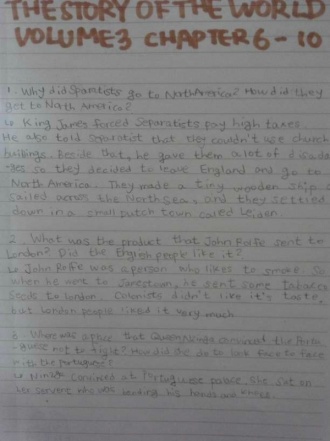 THE STORY OF THE WORLD
VOLUME 3 CHAPTER 6 - 10
1. Why did Sparatists go to North America? How did they
get to North America?
↳ King James forced Separatists pay high taxes.
He also told separatist that they couldn't use church
buildings. Beside that, he gave them a lot of disadva
-ges so they decided to leave England and go to
North America. They made a tiny wooden ship &
sailed across the North sea, and they settled
down in a small Dutch town called Leiden.
2. What was the product that John Rolfe sent to
London? Did the English people like it?
↳ John Rolfe was a person who likes to smoke. So
when he went to Jamestown, he sent some tabacco
seeds to london. Colonists didn't like it's taste,
but london people liked it very much.
that Queen Nzinga convinced the Portu
guese not to fight? How did she do to look face to face
with the portuguese?
at Portuguese palace. She sat on
her servent who was bending his hands and knees.